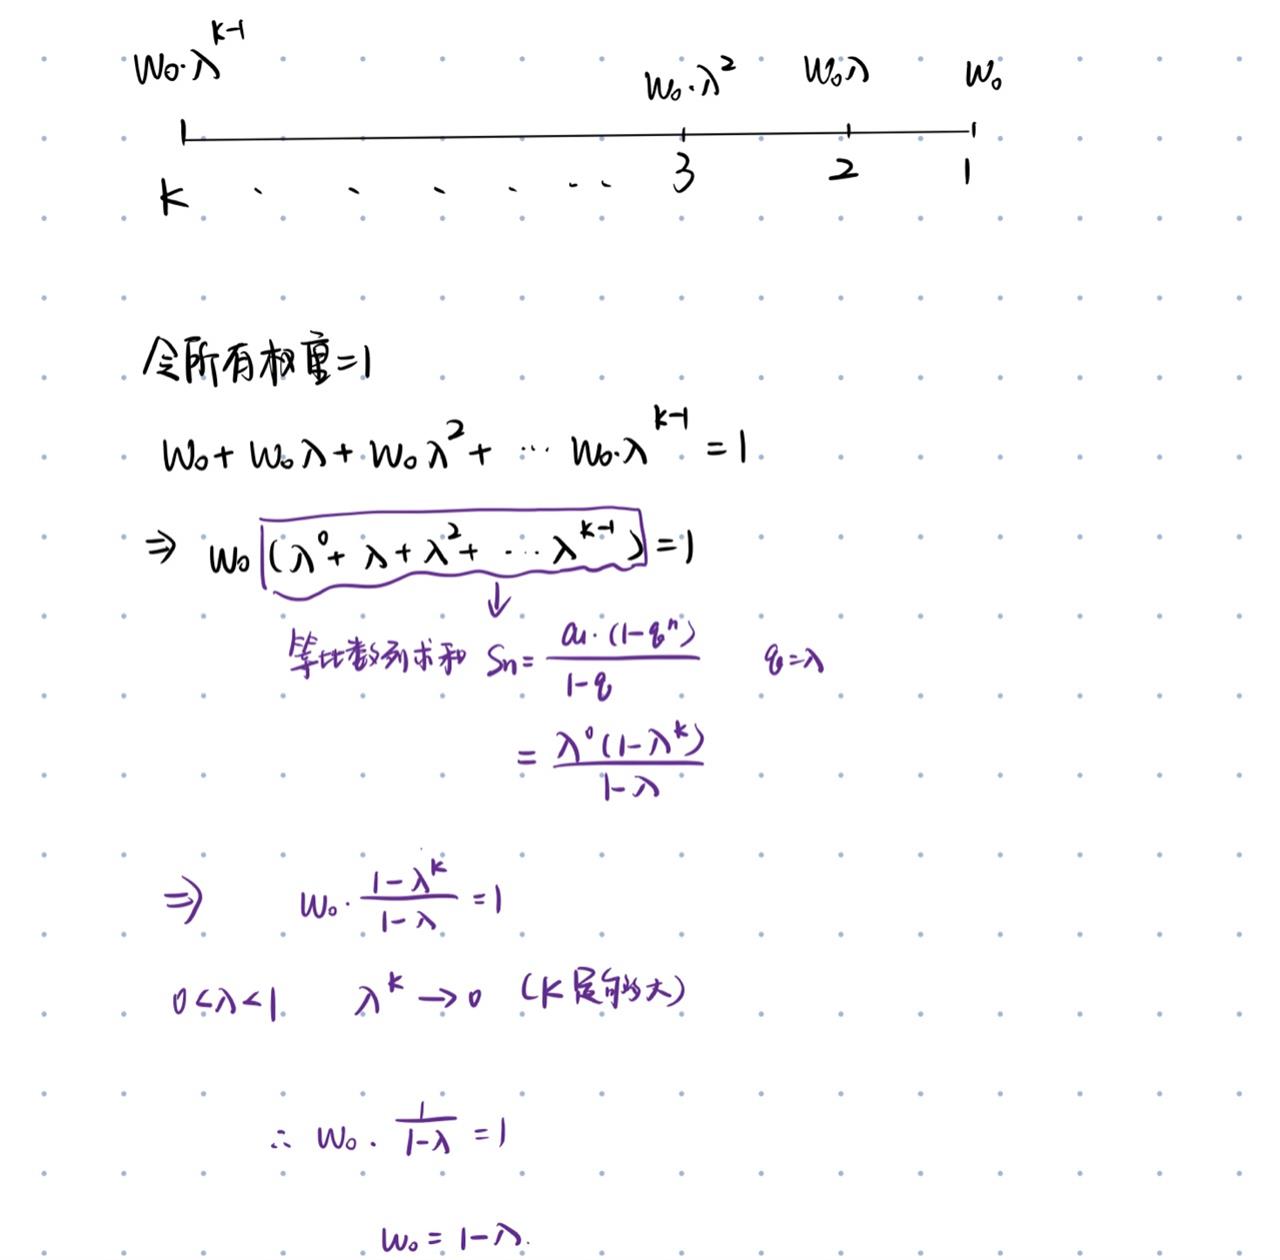 W₀·λ^(k-1) W₀·λ² W₀λ W₀
k · · · · · · · 3 2 1
令所有权重=1
W₀ + W₀λ + W₀λ² + ··· W₀·λ^(k-1) = 1
⇒ W₀ (λ⁰ + λ + λ² + ··· λ^(k-1)) = 1
↓
等比数列求和 Sn = a₁·(1-qⁿ) / (1-q) q=λ
= λ⁰(1-λ^k) / (1-λ)
⇒ W₀ · (1-λ^k) / (1-λ) = 1
0<λ<1 λ^k → 0 (k足够大)
∴ W₀ · 1 / (1-λ) = 1
W₀ = 1-λ.